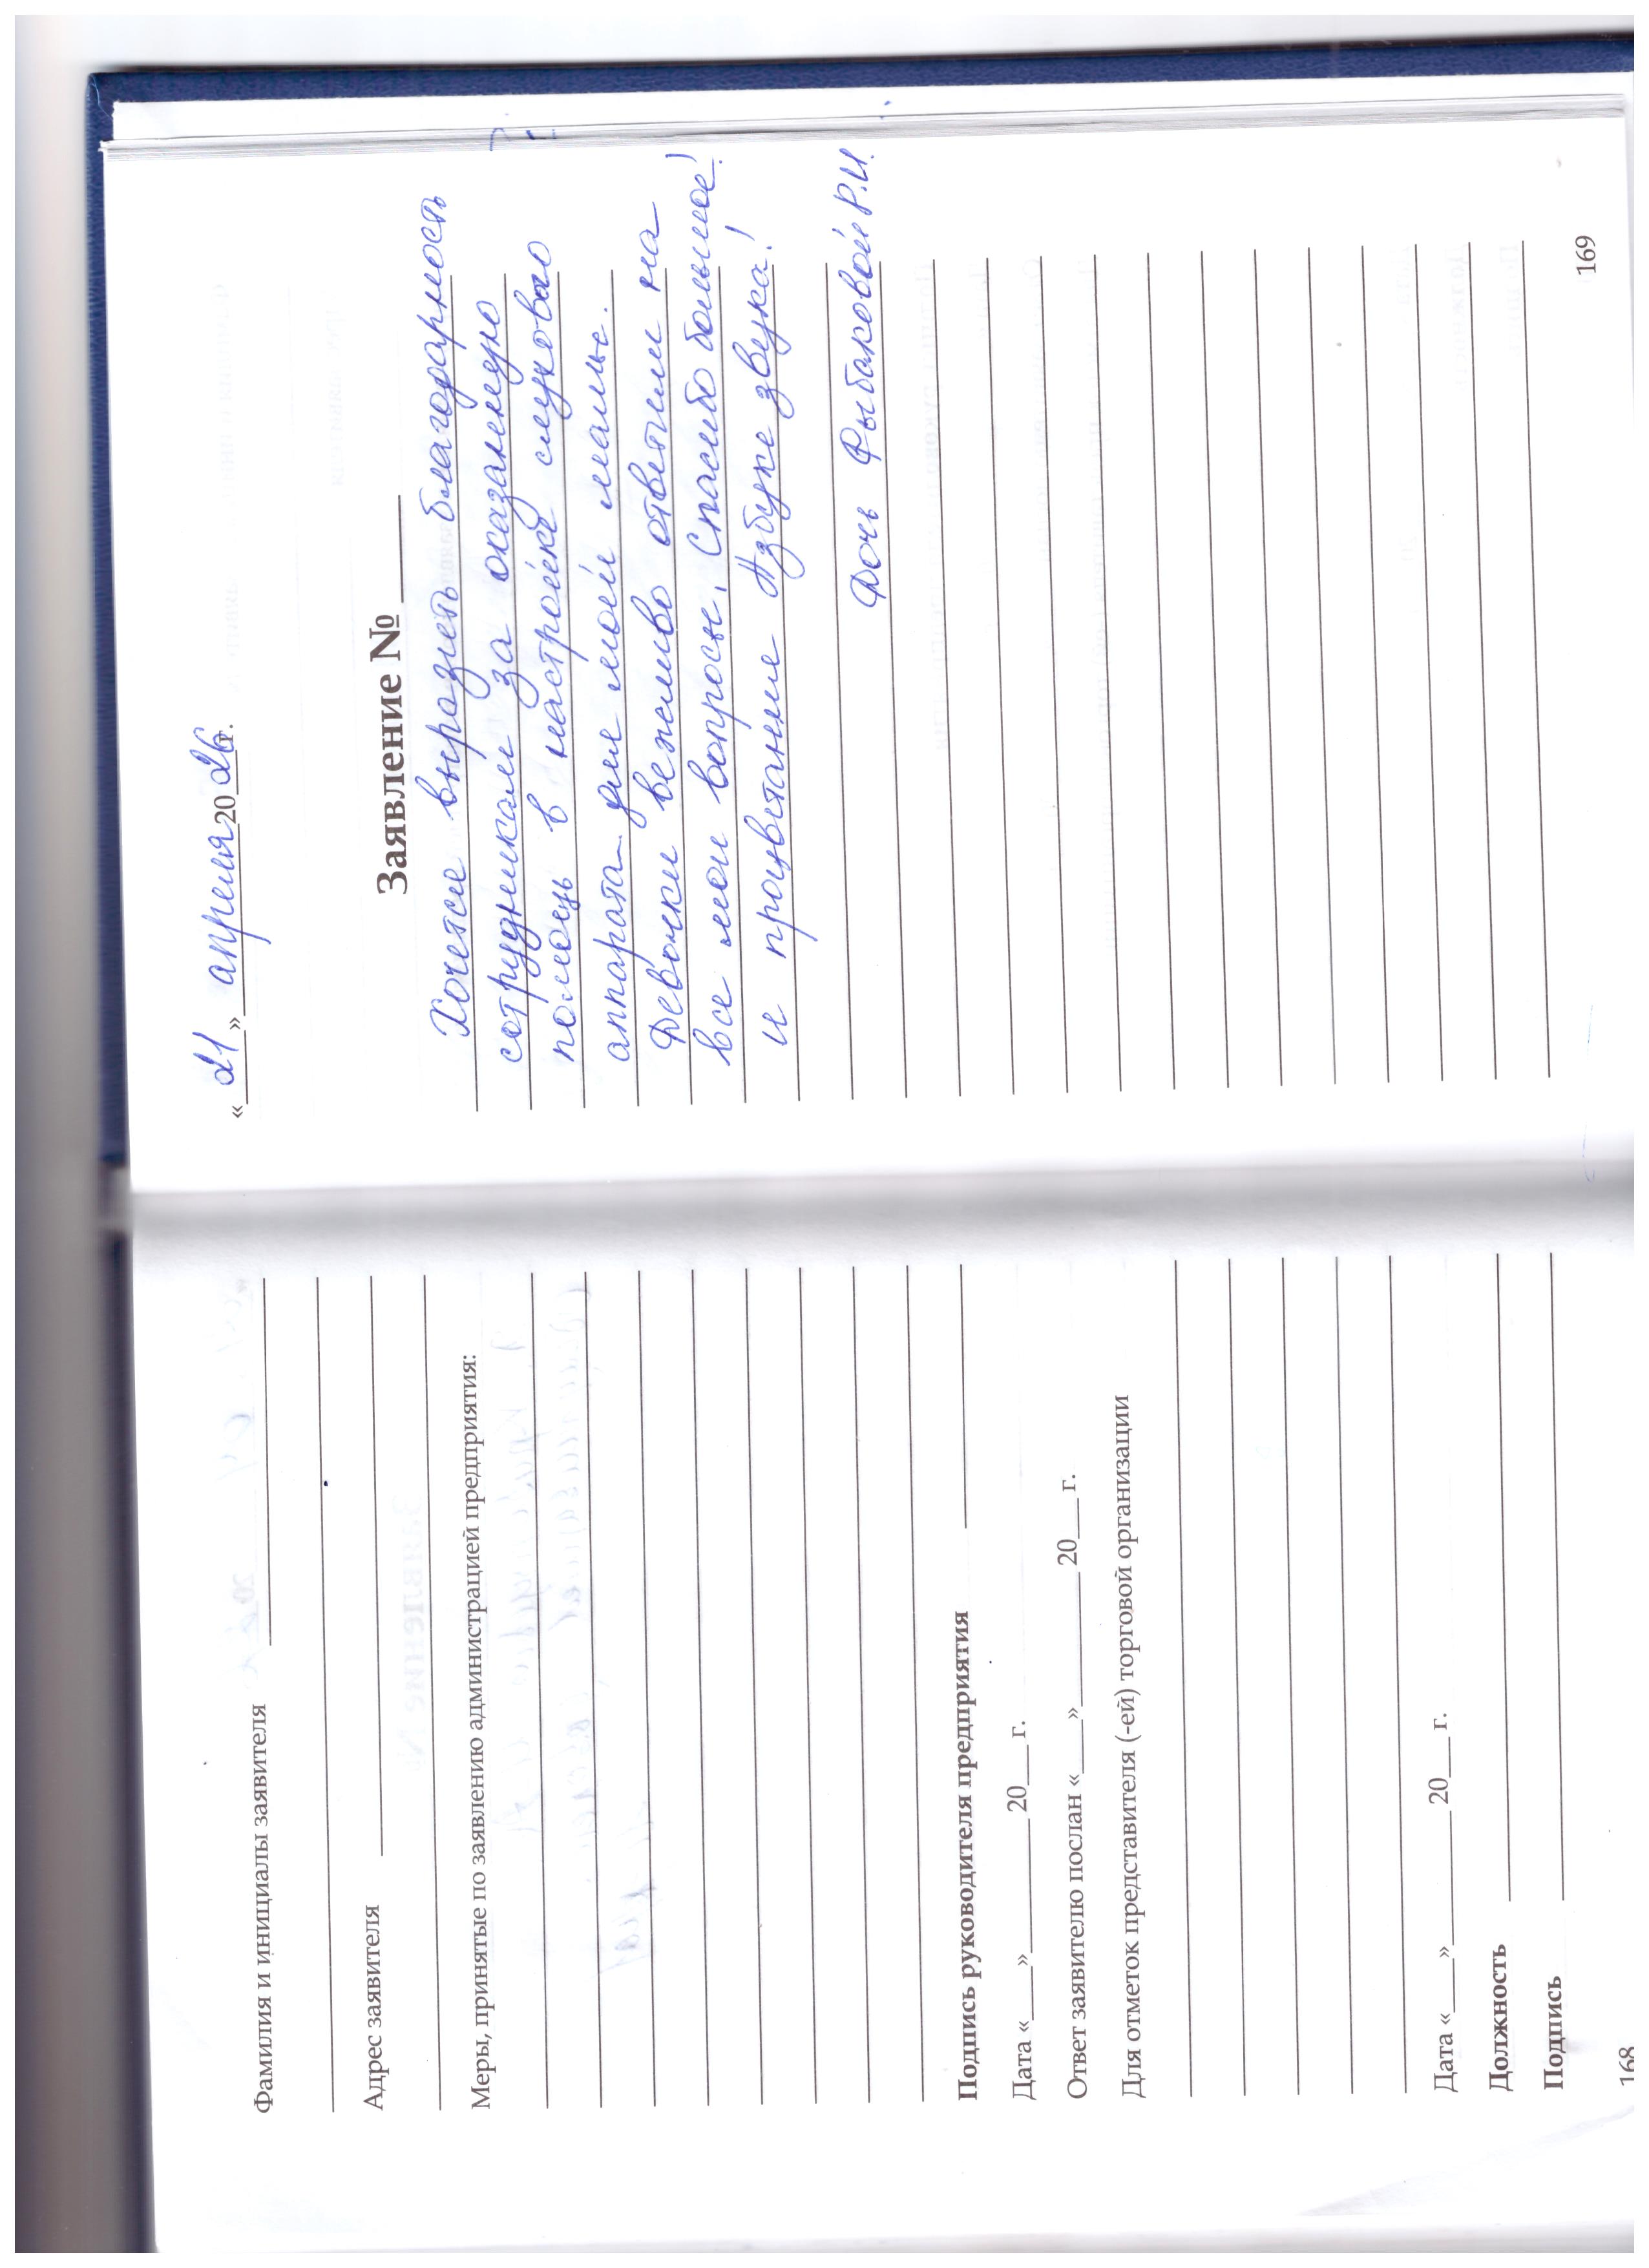 Фамилия и инициалы заявителя
Адрес заявителя
Меры, принятые по заявлению администрацией предприятия:
Подпись руководителя предприятия
Дата «___»__________20___г.
Ответ заявителю послан «___»__________20___г.
Для отметок представителя (-ей) торговой организации
Дата «___»__________20___г.
Должность
Подпись
168
«21» апреля 2026г.
Заявление №
Хочется выразить благодарность
сотрудникам за оказанную
помощь в настройке слухового
аппарата для моей мамы.
Девочки вежливо ответили на
все мои вопросы. Спасибо большое!
и процветание Азбуке звука!
Дочь Рыбаковой Р.И.
169